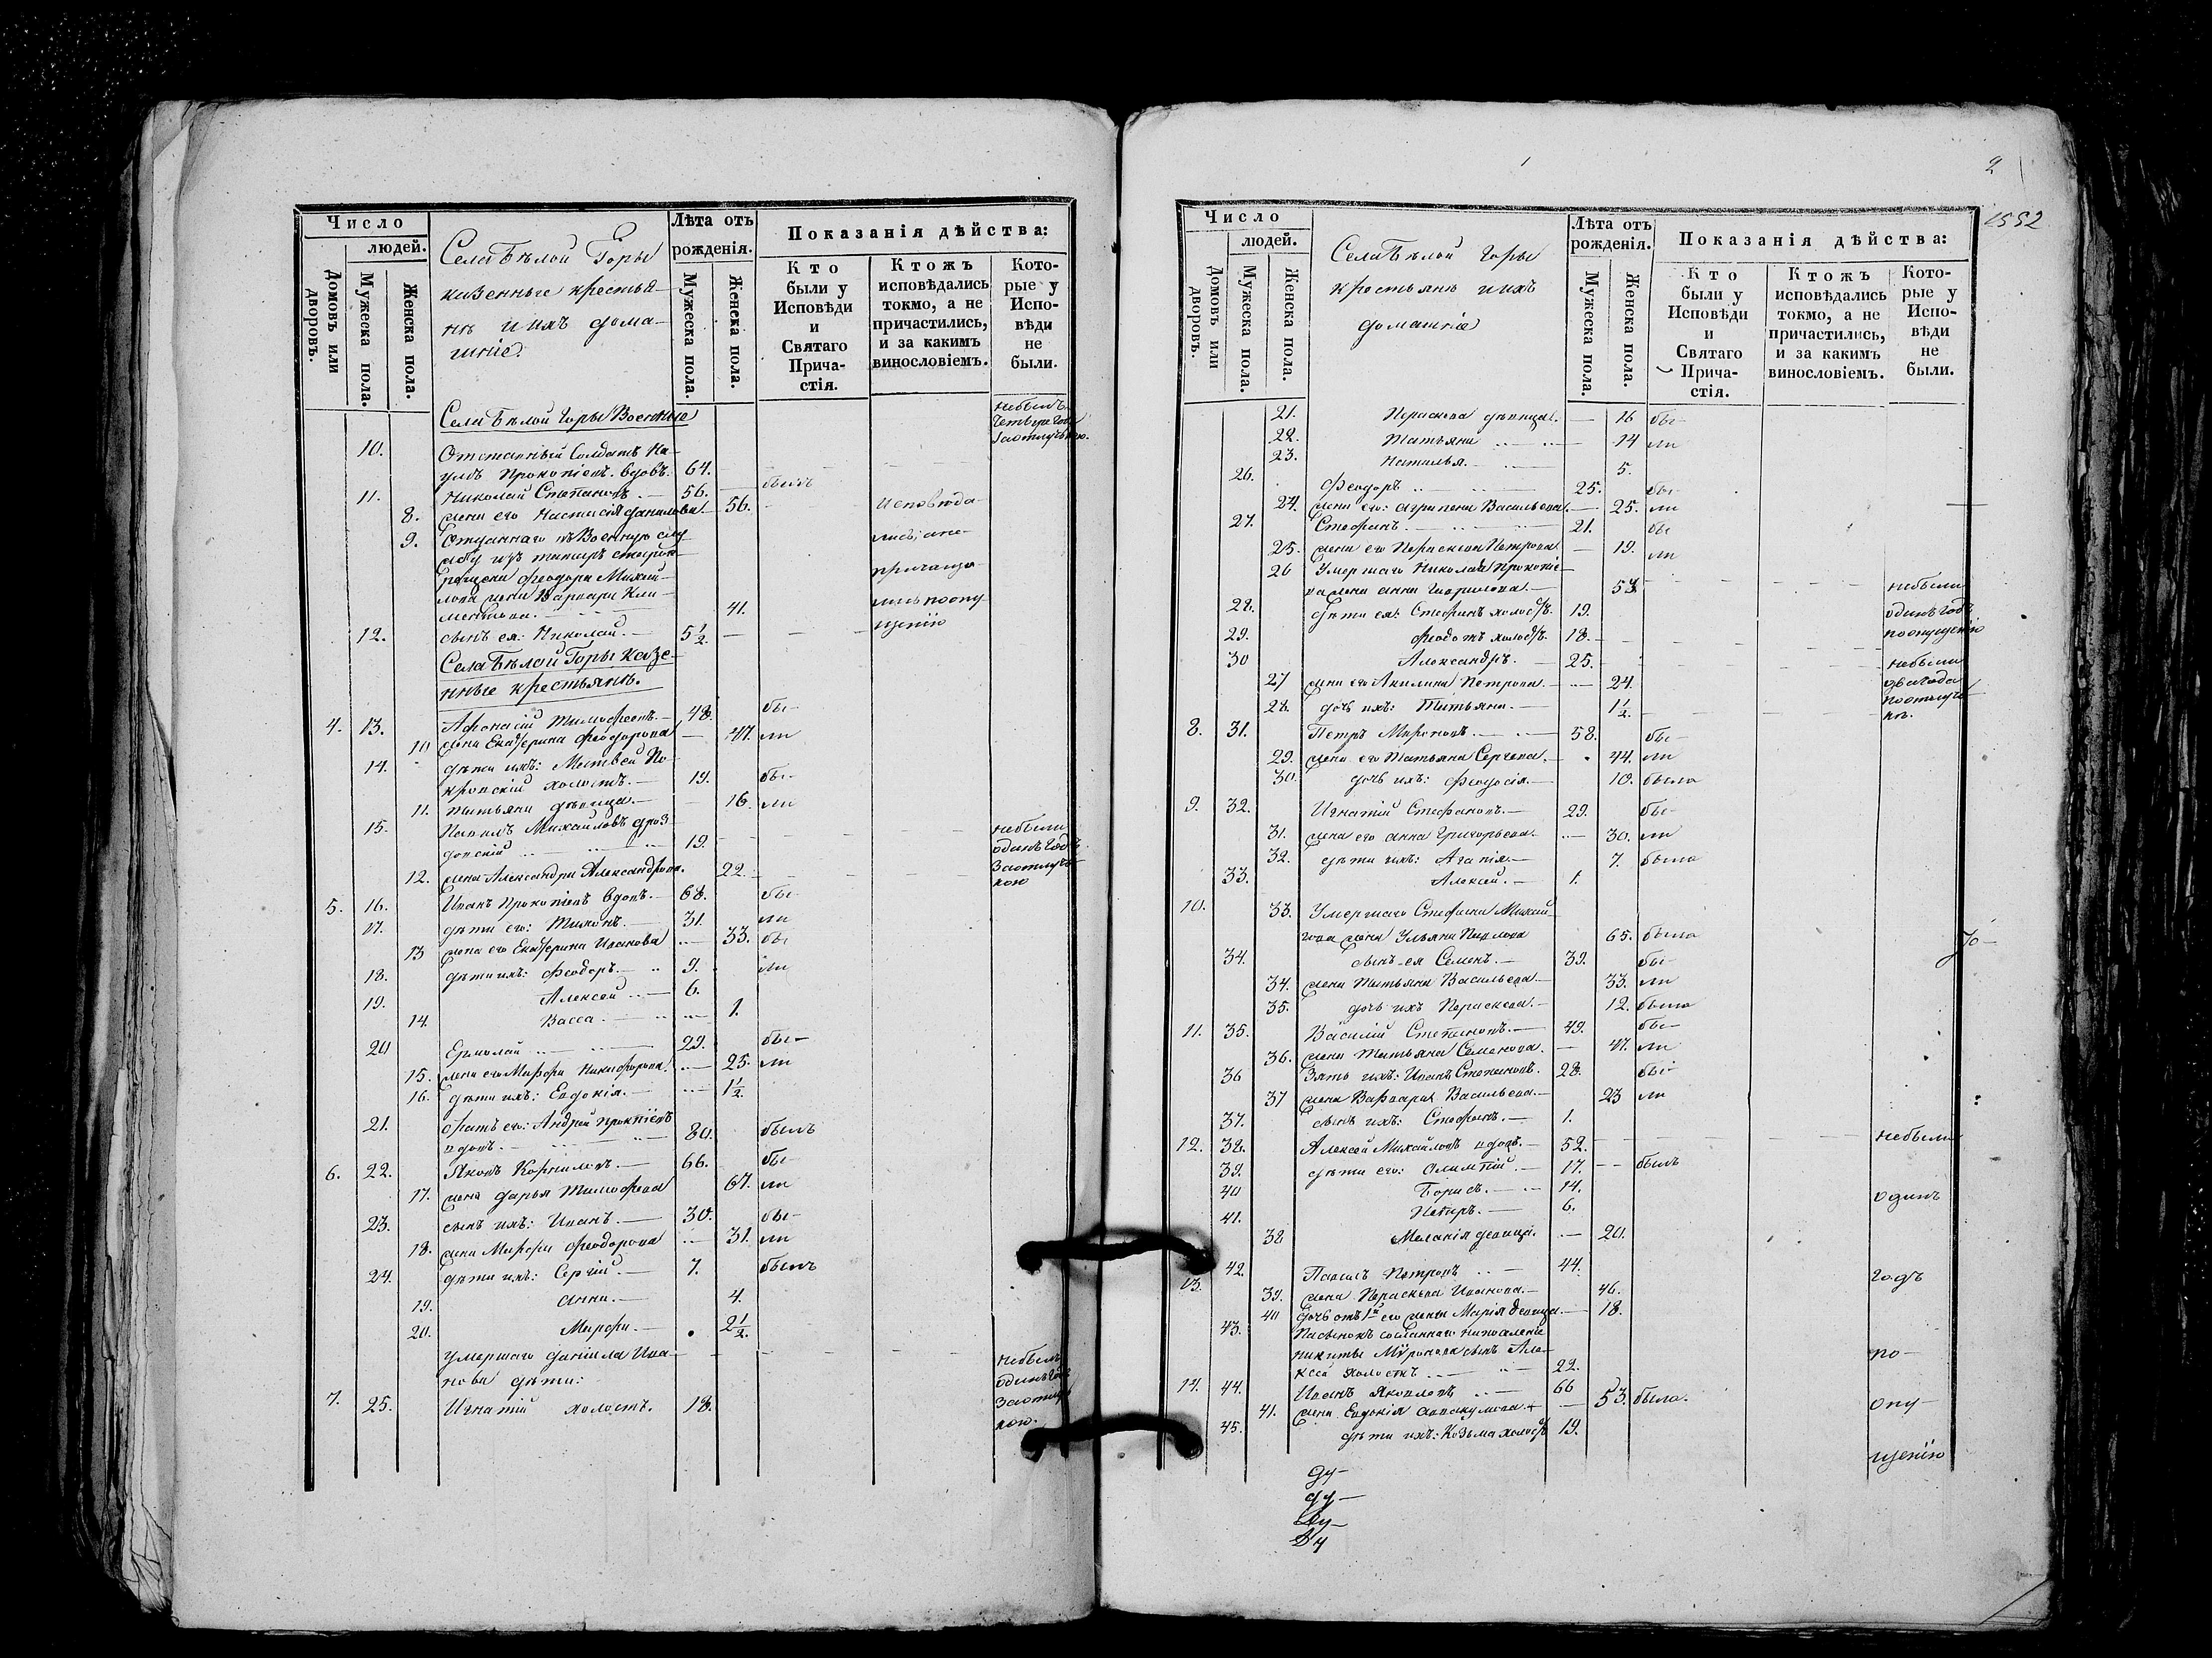 Число
людей.
Домовъ или дворовъ.
Мужеска пола.
Женска пола.
Села Бѣлой Горы
казенные крестья-
нѣ и ихъ дома-
шніе.
Лѣта отъ
рожденія.
Мужеска пола.
Женска пола.
Показанія дѣйства:
Кто
были у
Исповѣди
и
Святаго
Прича-
стія.
Ктожъ
исповѣдались
токмо, а не
причастились,
и за какимъ
винословіемъ.
Кото-
рые у
Испо-
вѣди
не
были.
Села Бѣлой Горы Военные
небылъ
четыре года
заотлучкою.
10. Отставный Солдатъ На-
умъ Прокопіевъ вдовъ. 64.
11. Николай Степановъ. — 56. былъ
8. жена его Настасія Данилова — 56. исповѣда-
9. Отданнаго въ Военную слу- лись, а не
жбу изъ
Феодора Михай- причаща-
лова жена Варвара Кли-
ментова. — 41. лись по опу-
12. сынъ ея: Николай. — 5½ щенію
Села Бѣлой Горы Казе-
нные крестьянѣ.
4. 13. Афонасій Тимофеевъ. — 48. бы-
10 жена Екатерина Феодорова — 47. ли
14. дѣти ихъ: Матвей По-
кровскій холостъ. — 19. бы-
11. Татьяна дѣвица. — 16. ли
15. Павелъ Михайловъ Дроз-
довскій — 19. небыли
одинъ годъ
12. жена Александра Александрова. 22. заотлуч-
кою
5. 16. Иванъ Прокопіевъ вдовъ. — 68. бы-
17. дѣти его: Тихонъ. — 31. ли
13 жена его Екатерина Иванова — 33. бы-
18. дѣти ихъ: Феодоръ. — 9. ли
19. Алексей — 6.
14. Васса. — 1.
20 Ермолай — 29. бы-
15. жена его Марфа Никифорова. — 25. ли
16. дѣти ихъ: Евдокія. — 1½
21. братъ его: Андрей Прокпіевъ
вдовъ. — 80. былъ
6. 22. Яковъ Корниловъ. — 66. бы-
17. жена Дарья Тимофеева 67. ли
23. сынъ ихъ: Иванъ. — 30. бы-
18. жена Марфа Феодорова — 31. ли
24. дѣти ихъ: Сергій. — 7. былъ
19. Анна. — 4.
20. Марфа. — 2½
умершаго Даніила Ива-
нова дѣти: небылъ
одинъ годъ
7. 25. Игнатій холостъ. 18. заотлуч-
кою.
2
1552
Число
людей.
Домовъ или дворовъ.
Мужеска пола.
Женска пола.
Села Бѣлой Горы
крестьянѣ и ихъ
домашніе
Лѣта отъ
рожденія.
Мужеска пола.
Женска пола.
Показанія дѣйства:
Кто
были у
Исповѣди
и
Святаго
Прича-
стія.
Ктожъ
исповѣдались
токмо, а не
причастились,
и за какимъ
винословіемъ.
Кото-
рые у
Испо-
вѣди
не
были.
21. Параскева дѣвица. — 16 бы-
22. Татьяна — 14 ли
23. Наталья. — 5.
26. Феодоръ — 25. бы-
24. жена его: Агрипена Васильева. — 25. ли
27. Стефанъ. — 21. бы
25. жена его Параскева Петрова. — 19. ли
26 Умершаго Николая Прокопіе-
ва жена Анна Гаврилова. — 53. небыли
28. дѣти ея: Стефанъ холостъ. 19. одинъ годъ
29. Феодотъ холостъ. 18. по опущенію
30 Александръ. — 25. небыли
27 жена его Акилина Петрова. — 24. два года
28. дочь ихъ: Татьяна. — 1½. по отлуч-
кѣ.
8. 31. Петръ Мироновъ. — 58. бы-
29. жена его Татьяна Сергеева. — 44. ли
30. дочь ихъ: Феодосія. — 10. была
9. 32. Игнатій Стефановъ. — 29. бы-
31. жена его Анна Григорьева. — 30. ли
32. дѣти ихъ: Агапія. — 7. была
33. Алексей. — 1.
10. 33. Умершаго Стефана Михай-
лова жена Ульяна Павлова 65. была
34. сынъ ея Семенъ. — 39. бы-
34. жена Татьяна Васильева. — 33. ли
35. дочь ихъ Параскева. — 12. была
11. 35. Василій Степановъ. — 49. бы-
36. жена Татьяна Семенова. — 47. ли
36 Зять ихъ: Иванъ Степановъ. 28. бы-
37 жена Варвара Васильева. — 23 ли
37. сынъ ихъ: Стефанъ. — 1.
12. 38. Алексей Михайловъ вдовъ. — 52. небыли
39. дѣти его: Олимпій. — 17. — былъ
40 Борисъ. — 14. одинъ
41. Петръ. — 6.
38 Меланія девица. — 20.
13. 42. Павелъ Петровъ — 44. годъ
39. жена Параскева Иванова. — 46.
40 дочь отъ 1й его жены Марія девица. — 18.
43. Пасынокъ сосланнаго напоселеніе
Никиты Миронова сынъ Але- по-
ксей холостъ — 22.
14. 44. Иванъ Яковлевъ — 66
41. жена Евдокія Аввакумова + — 53. была. опу-
45. дѣти ихъ: Козьма холостъ 19.
щенію
Ду-
ду-
Ду-
Ду